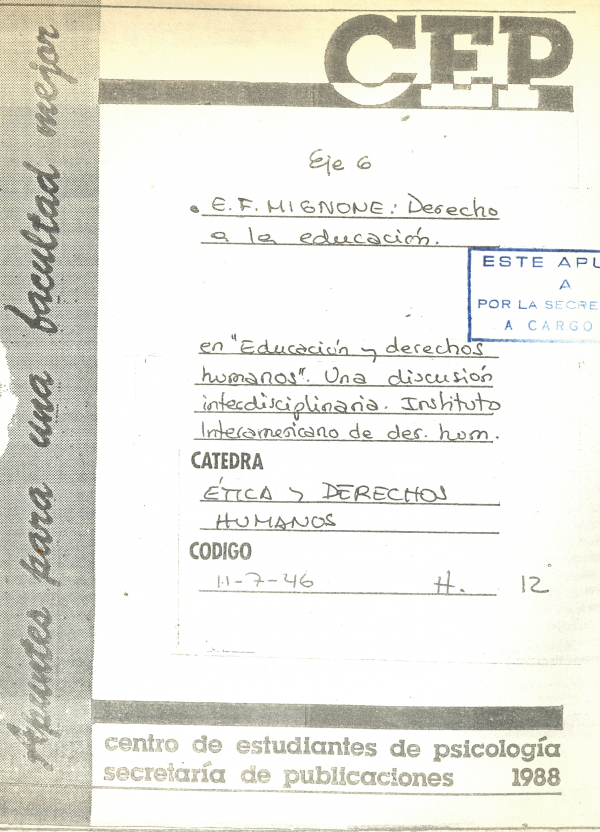 CEP
Apuntes para una facultad mejor
Eje 6
• E. F. MIGNONE: Derecho
a la educación.
ESTE APU
A
POR LA SECRE
A CARGO
en "Educación y derechos
humanos". Una discusión
interdisciplinaria. Instituto
Interamericano de der. hum.
CATEDRA
ÉTICA y DERECHOS
HUMANOS
CODIGO
11-7-46 H. 12
centro de estudiantes de psicología
secretaría de publicaciones 1988